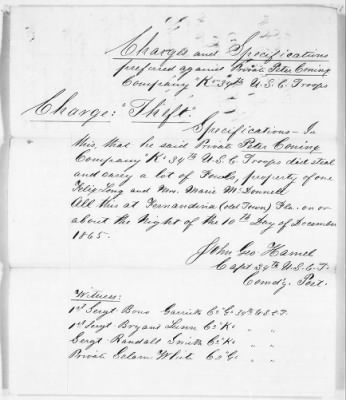 Charges and Specifications
preferred against Private Peter Coning
Company "K" 34th U.S.C. Troops
Charge: "Theft".
Specifications - In
this, that he said Private Peter Coning
Company "K" 34th U.S.C. Troops did steal
and carry a lot of Fowls, property of one
Felix Long and Mrs. Marie McDonnell
All this at Fernandina (old Town) Fla. on or
about the Night of the 10th Day of December
1865.
John Geo Hamel
Capt 34th U.S.C.T.
Comd'g. Post.
Witness:
1st Sergt Bono Garrick Co G. 34th U.S.C.T.
1st Sergt Bryant Co K. " "
Sergt Randall Smith Co K. " "
Private White Co G. " "